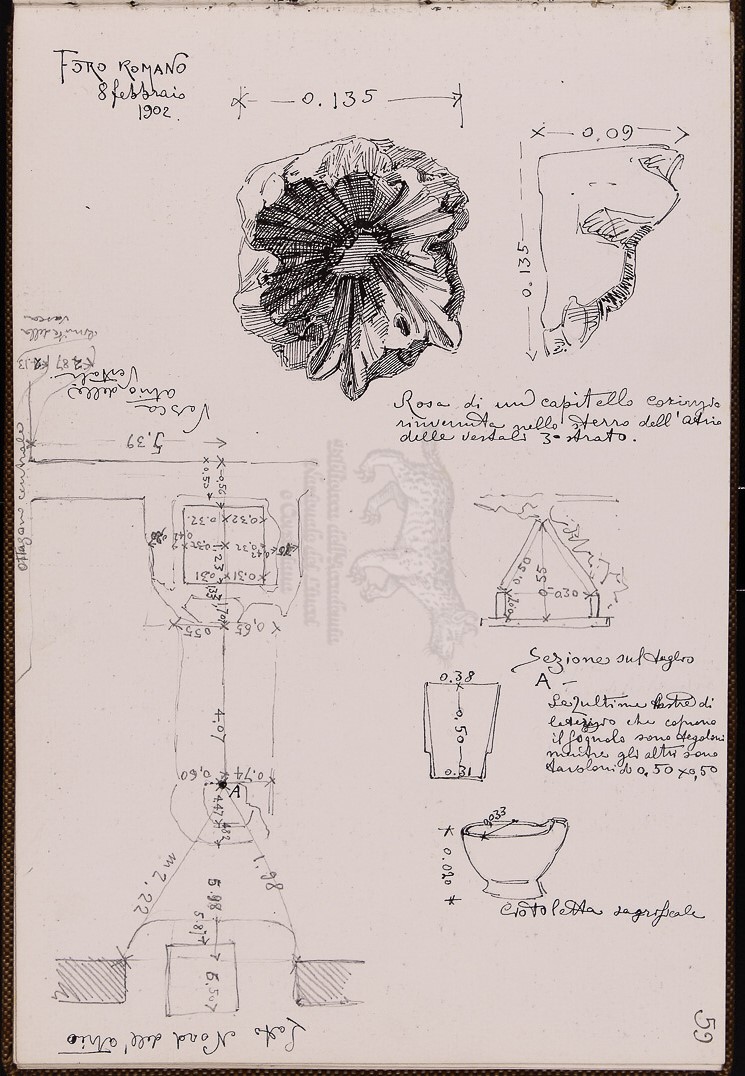 FORO ROMANO
8 febbraio
1902.
0.135
0,09
0.135
Rosa di un capitello corinzio
rinvenuta nello sterro dell'atrio
delle vestali 3º strato.
limite della
vasca
Vasca
atrio delle
Vestali
ottagono centrale
5,39
0.50
0.56
0.32
0.32
1.23
0.31
0.31
1.70
0.55
0,65
4.07
0,60
0.74
A
4.47
m 2.22
1.98
5.98
5.81
Lato Nord dell'atrio
0.50
0.55
0.30
Sezione sul taglio
A –
Le ultime lastre di
che coprono
il fognolo sono tegoloni
mentre gli altri sono
tavoloni di 0,50 x 0,50
0.38
0.50
0.31
0.033
0.020
Ciotoletta sagrificale
59